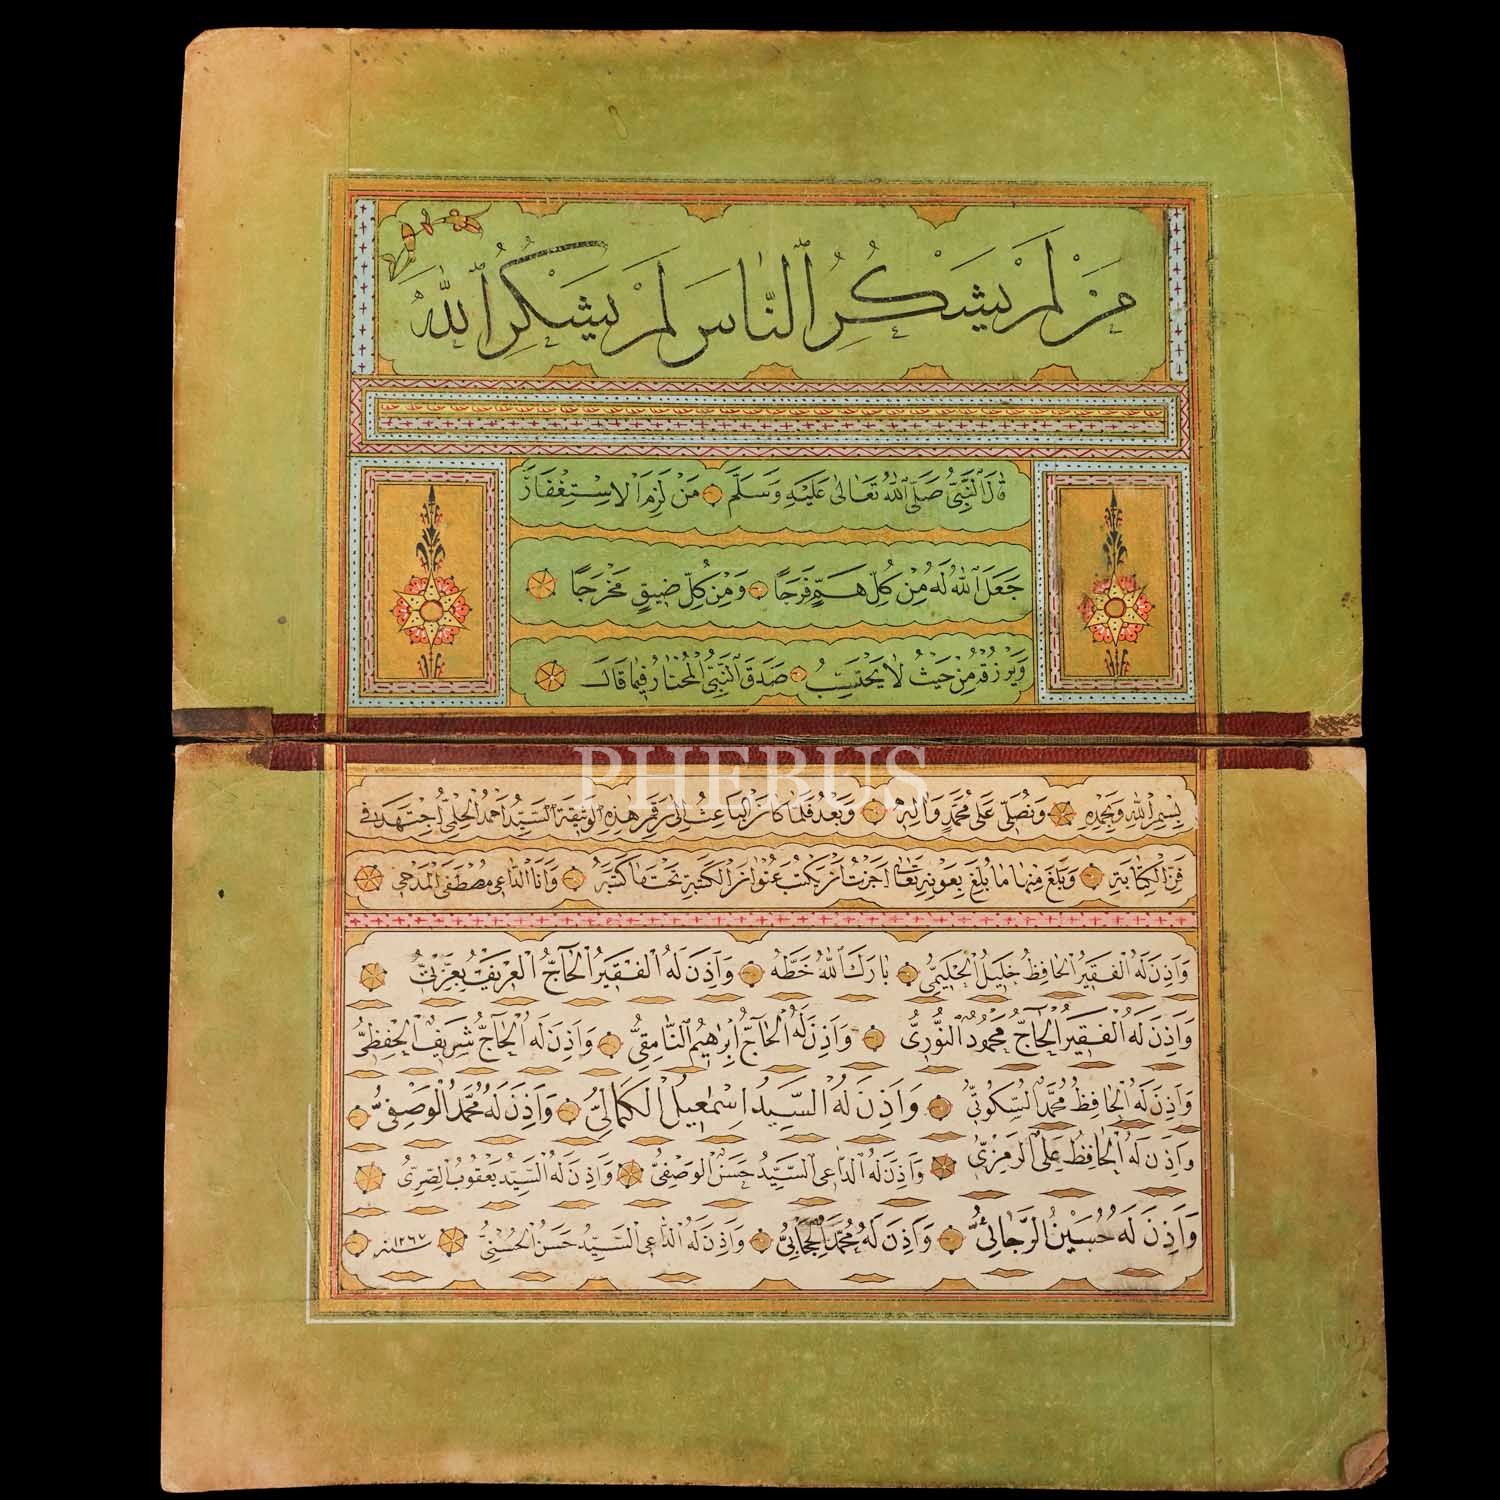 مَنْ لَمْ يَشْكُرِ ٱلنَّاسَ لَمْ يَشْكُرِ ٱللهَ
قَالَ ٱلنَّبِيُّ صَلَّى ٱللهُ تَعَالٰى عَلَيْهِ وَسَلَّمَ مَنْ لَزِمَ الْاِسْتِغْفَارَ
جَعَلَ ٱللهُ لَهُ مِنْ كُلِّ هَمٍّ فَرَجًا وَمِنْ كُلِّ ضِيقٍ مَخْرَجًا
وَيَرْزُقُهُ مِنْ حَيْثُ لَا يَحْتَسِبُ صَدَقَ ٱلنَّبِيُّ الْمُخْتَارُ فِيمَا قَالَ
PHEBUS
بِسْمِ ٱللهِ وَبِحَمْدِهِ وَنُصَلِّي عَلٰى مُحَمَّدٍ وَاٰلِهِ وَبَعْدُ فَلَمَّا كَانَ الْبَاعِثُ اِلٰى رَقْمِ هٰذِهِ الْوَثِيقَةِ السَّيِّدُ اَحْمَدُ الْحِلْمِي اِجْتَهَدَ فِي
فَنِّ الْكِتَابَةِ وَبَلَغَ مِنْهَا مَا بَلَغَ بِعَوْنِهِ تَعَالٰى اَجَزْتُ اَنْ يَكْتُبَ عُنْوَانَ الْكَتَبَةِ تَحْتَ مَا كَتَبَهُ وَاَنَا الدَّاعِي مُصْطَفَى الْمَدْحِي
وَاَذِنَ لَهُ الْفَقِيرُ الْحَافِظُ خَلِيلُ الْحَلِيمِيُّ بَارَكَ ٱللهُ خَطَّهُ وَاَذِنَ لَهُ الْفَقِيرُ الْحَاجُّ الْعَرِيفُ بِعِزَّتْ
وَاَذِنَ لَهُ الْفَقِيرُ الْحَاجُّ مَحْمُودُ النُّورِيُّ وَاَذِنَ لَهُ الْحَاجُّ اِبْرٰهِيمُ النَّامِقِيُّ وَاَذِنَ لَهُ الْحَاجُّ شَرِيفُ الْحِفْظِيُّ
وَاَذِنَ لَهُ الْحَافِظُ مُحَمَّدُ السُّكُوتِيُّ وَاَذِنَ لَهُ السَّيِّدُ اِسْمٰعِيلُ الْكَمَالِيُّ وَاَذِنَ لَهُ مُحَمَّدُ الْوَصْفِيُّ
وَاَذِنَ لَهُ الْحَافِظُ عَلِي الرَّمْزِيُّ وَاَذِنَ لَهُ الدَّاعِي السَّيِّدُ حَسَنُ الْوَصْفِيُّ وَاَذِنَ لَهُ السَّيِّدُ يَعْقُوبُ الصِّرِّيُّ
وَاَذِنَ لَهُ حُسَيْنُ الرَّجَائِيُّ وَاَذِنَ لَهُ مُحَمَّدُ وَاَذِنَ لَهُ الدَّاعِي السَّيِّدُ حَسَنُ الْحُسْنِيُّ سنه ١٢٦٧